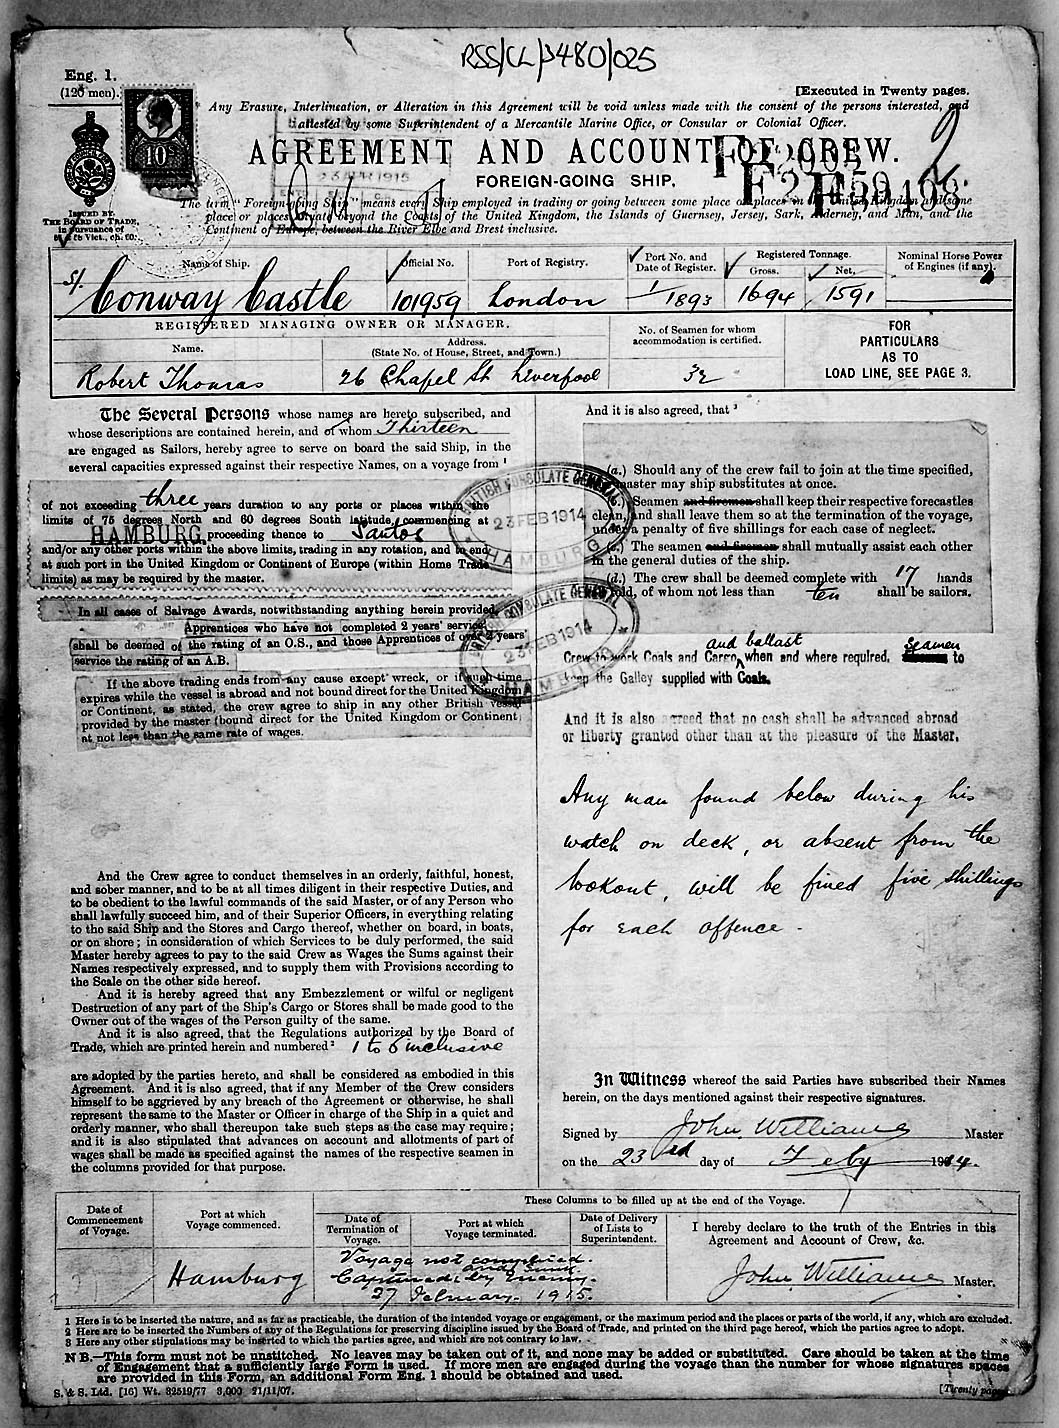 RSS/CL/ 480/025
Eng. 1.
(120 men).
[Executed in Twenty pages.
10
Any Erasure, Interlineation, or Alteration in this Agreement will be void unless made with the consent of the persons interested, and
attested by some Superintendent of a Mercantile Marine Office, or Consular or Colonial Officer.
AGREEMENT AND ACCOUNT OF CREW.
FOREIGN-GOING SHIP.
APR 1915
ISSUED BY
THE BOARD OF TRADE,
in pursuance of
The term "Foreign-going Ship" means every Ship employed in trading or going between some place or places in the United Kingdom and some
place or places situate beyond the Coasts of the United Kingdom, the Islands of Guernsey, Jersey, Sark, Alderney, and Man, and the
Continent of Europe, between the River Elbe and Brest inclusive.
Name of Ship.
Official No.
Port of Registry.
Port No. and
Date of Register.
Registered Tonnage.
Gross.
Net.
Nominal Horse Power
of Engines (if any).
Conway Castle
101959
London
1/1893
1694
1591
REGISTERED MANAGING OWNER OR MANAGER.
Name.
Address.
(State No. of House, Street, and Town.)
No. of Seamen for whom
accommodation is certified.
FOR
PARTICULARS
AS TO
LOAD LINE, SEE PAGE 3.
Robert Thomas
26 Chapel St Liverpool
32
The Several Persons whose names are hereto subscribed, and
whose descriptions are contained herein, and of whom Thirteen
are engaged as Sailors, hereby agree to serve on board the said Ship, in the
several capacities expressed against their respective Names, on a voyage from 1
of not exceeding three years duration to any ports or places within the
limits of 75 degrees North and 60 degrees South latitude, commencing at
HAMBURG proceeding thence to Santos
and/or any other ports within the above limits, trading in any rotation, and to end
at such port in the United Kingdom or Continent of Europe (within Home Trade
limits) as may be required by the master.
In all cases of Salvage Awards, notwithstanding anything herein provided,
Apprentices who have not completed 2 years' service
shall be deemed of the rating of an O.S., and those Apprentices of over 2 years'
service the rating of an A.B.
If the above trading ends from any cause except wreck, or if such time
expires while the vessel is abroad and not bound direct for the United Kingdom
or Continent, as stated, the crew agree to ship in any other British vessel
provided by the master (bound direct for the United Kingdom or Continent)
at not less than the same rate of wages.
And the Crew agree to conduct themselves in an orderly, faithful, honest,
and sober manner, and to be at all times diligent in their respective Duties, and
to be obedient to the lawful commands of the said Master, or of any Person who
shall lawfully succeed him, and of their Superior Officers, in everything relating
to the said Ship and the Stores and Cargo thereof, whether on board, in boats,
or on shore; in consideration of which Services to be duly performed, the said
Master hereby agrees to pay to the said Crew as Wages the Sums against their
Names respectively expressed, and to supply them with Provisions according to
the Scale on the other side hereof.
And it is hereby agreed that any Embezzlement or wilful or negligent
Destruction of any part of the Ship's Cargo or Stores shall be made good to the
Owner out of the wages of the Person guilty of the same.
And it is also agreed, that the Regulations authorized by the Board of
Trade, which are printed herein and numbered 2 1 to 6 inclusive
are adopted by the parties hereto, and shall be considered as embodied in this
Agreement. And it is also agreed, that if any Member of the Crew considers
himself to be aggrieved by any breach of the Agreement or otherwise, he shall
represent the same to the Master or Officer in charge of the Ship in a quiet and
orderly manner, who shall thereupon take such steps as the case may require;
and it is also stipulated that advances on account and allotments of part of
wages shall be made as specified against the names of the respective seamen in
the columns provided for that purpose.
And it is also agreed, that 3
(a.) Should any of the crew fail to join at the time specified,
master may ship substitutes at once.
Seamen and firemen shall keep their respective forecastles
clean, and shall leave them so at the termination of the voyage,
under a penalty of five shillings for each case of neglect.
(c.) The seamen and firemen shall mutually assist each other
in the general duties of the ship.
(d.) The crew shall be deemed complete with 17 hands
told, of whom not less than ten shall be sailors.
and ballast seamen
Crew to work Coals and Cargo, when and where required. to
keep the Galley supplied with Coals.
And it is also agreed that no cash shall be advanced abroad
or liberty granted other than at the pleasure of the Master.
Any man found below during his
watch on deck, or absent from the
lookout, will be fined five shillings
for each offence.
BRITISH CONSULATE GENERAL
23 FEB 1914
HAMBURG
BRITISH CONSULATE GENERAL
23 FEB 1914
HAMBURG
In Witness whereof the said Parties have subscribed their Names
herein, on the days mentioned against their respective signatures.
Signed by John Williams Master
on the 23rd day of Feby 1914.
Date of
Commencement
of Voyage.
Port at which
Voyage commenced.
These Columns to be filled up at the end of the Voyage.
Date of
Termination of
Voyage.
Port at which
Voyage terminated.
Date of Delivery
of Lists to
Superintendent.
I hereby declare to the truth of the Entries in this
Agreement and Account of Crew, &c.
Hamburg
Voyage not completed.
and sunk
Captured by Enemy.
27 February. 1915.
John Williams Master.
1 Here is to be inserted the nature, and as far as practicable, the duration of the intended voyage or engagement, or the maximum period and the places or parts of the world, if any, which are excluded.
2 Here are to be inserted the Numbers of any of the Regulations for preserving discipline issued by the Board of Trade, and printed on the third page hereof, which the parties agree to adopt.
3 Here any other stipulations may be inserted to which the parties agree, and which are not contrary to law.
NB.—This form must not be unstitched. No leaves may be taken out of it, and none may be added or substituted. Care should be taken at the time
of Engagement that a sufficiently large Form is used. If more men are engaged during the voyage than the number for whose signatures spaces
are provided in this Form, an additional Form Eng. 1 should be obtained and used.
S. & S. Ltd. [16] Wt. 32519/77 3,000 21/11/07.
[Twenty pages